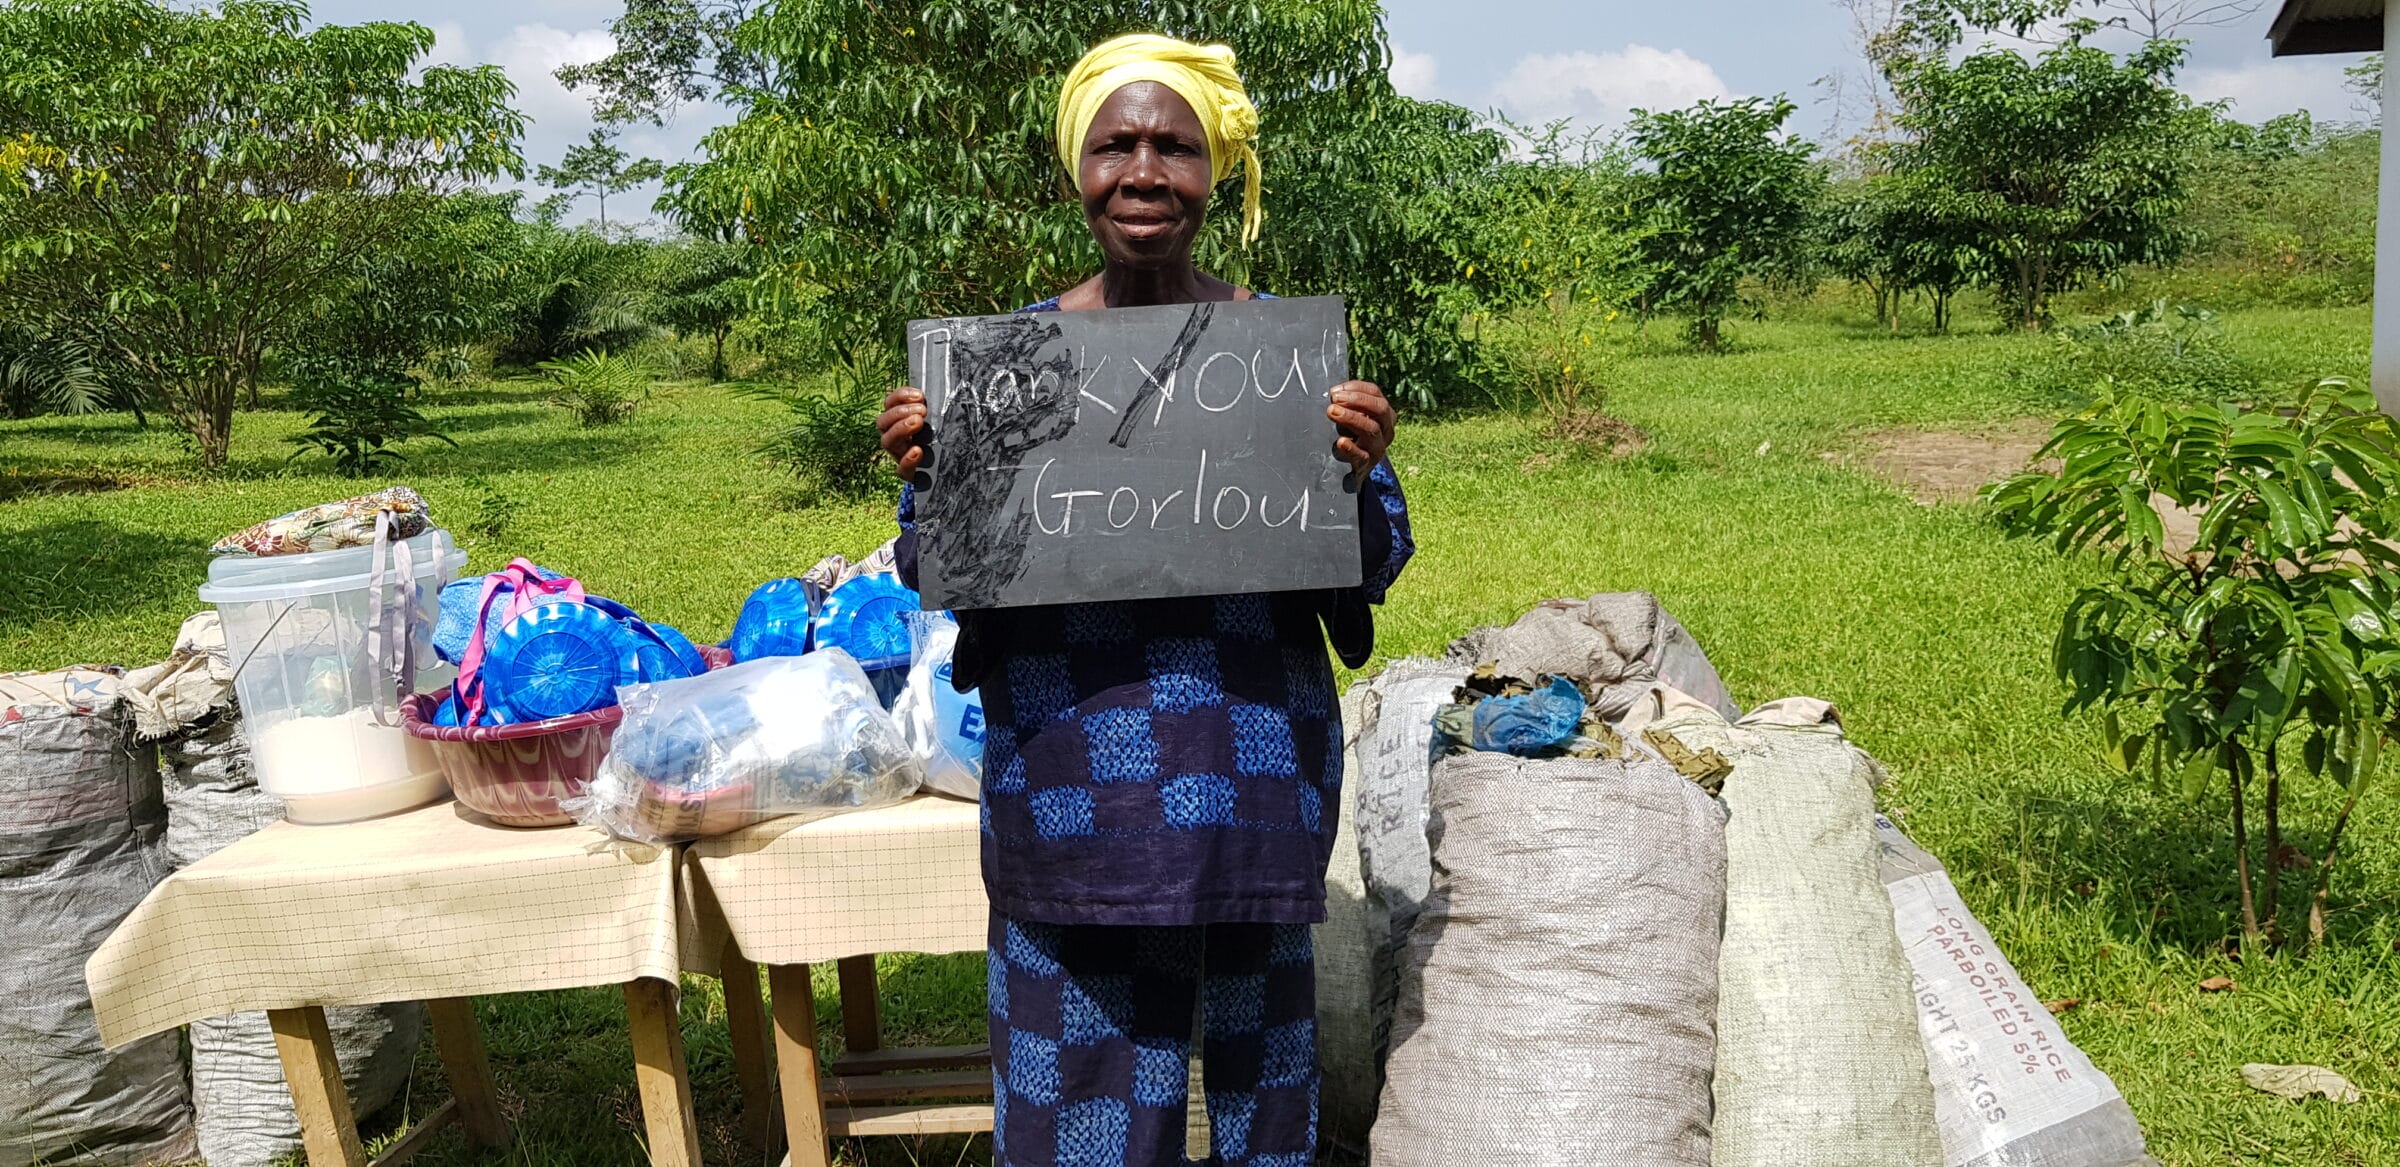 Thank you!!
- Gorlou
RICE
LONG GRAIN RICE
PARBOILED 5%
25 KGS